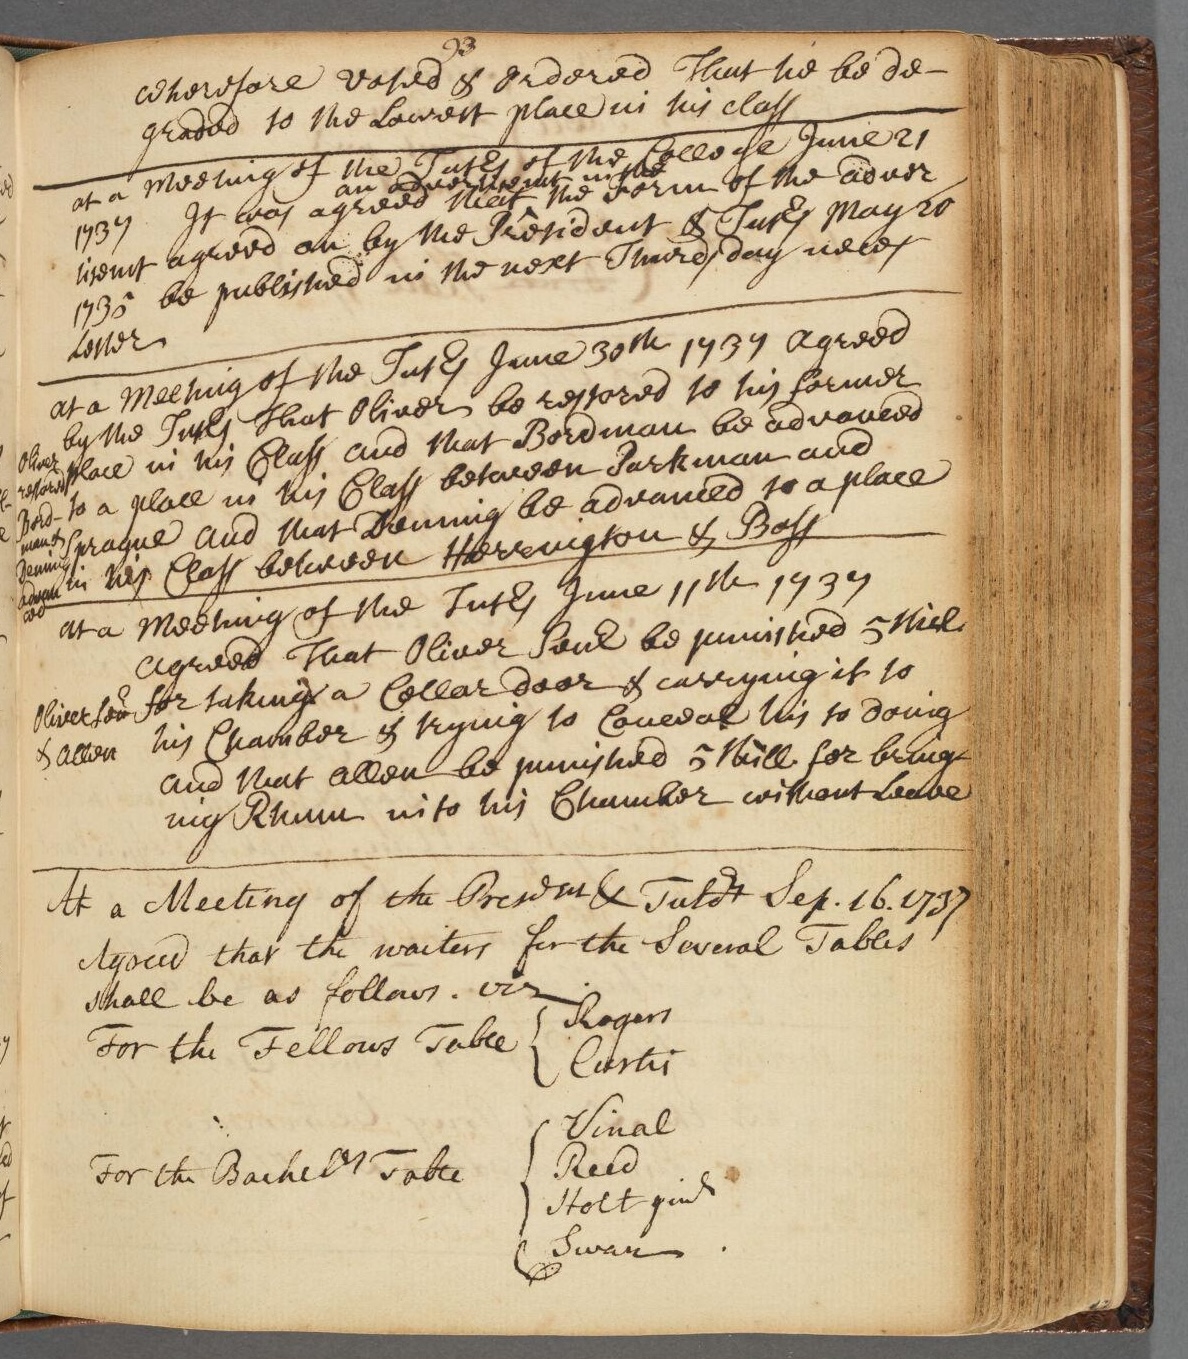 93
wherefore Voted & Ordered That he be de-
graded to the Lowest place in his class
at a Meeting of the Tutrs of the College June 21
1737 It was agreed that the Form of the adver
an advertisemt in the
tisemt agreed on by the President & Tutrs May 20
1735 be published in the next Thursday news
Letter
at a Meeting of the Tutrs June 30th 1737 agreed
by the Tutrs That Oliver be restored to his former
place in his Class and that Bordman be advanced
to a place in his Class between Parkman and
Sprague and that Denning be advanced to a place
in his Class between Harrington & Bass
Oliver
restored
Bord-
man &
Dening
advan
ced
at a Meeting of the Tutrs June 11th 1737
agreed That Oliver Senr be punished 5 shill.
for taking a Cellar door & carrying it to
his Chamber & trying to Conceal his so doing
and that Allen be punished 5 shill. for bring-
ing Rhum into his Chamber without Leave
Oliver senr
& Allen
At a Meeting of the Presdent & Tutors Sep. 16. 1737
Agreed that the waiters for the Several Tables
shall be as follows. viz
For the Fellows Table { Rogers
Curtis
For the Bachelrs Table { Vinal
Reed
Holt
Swan